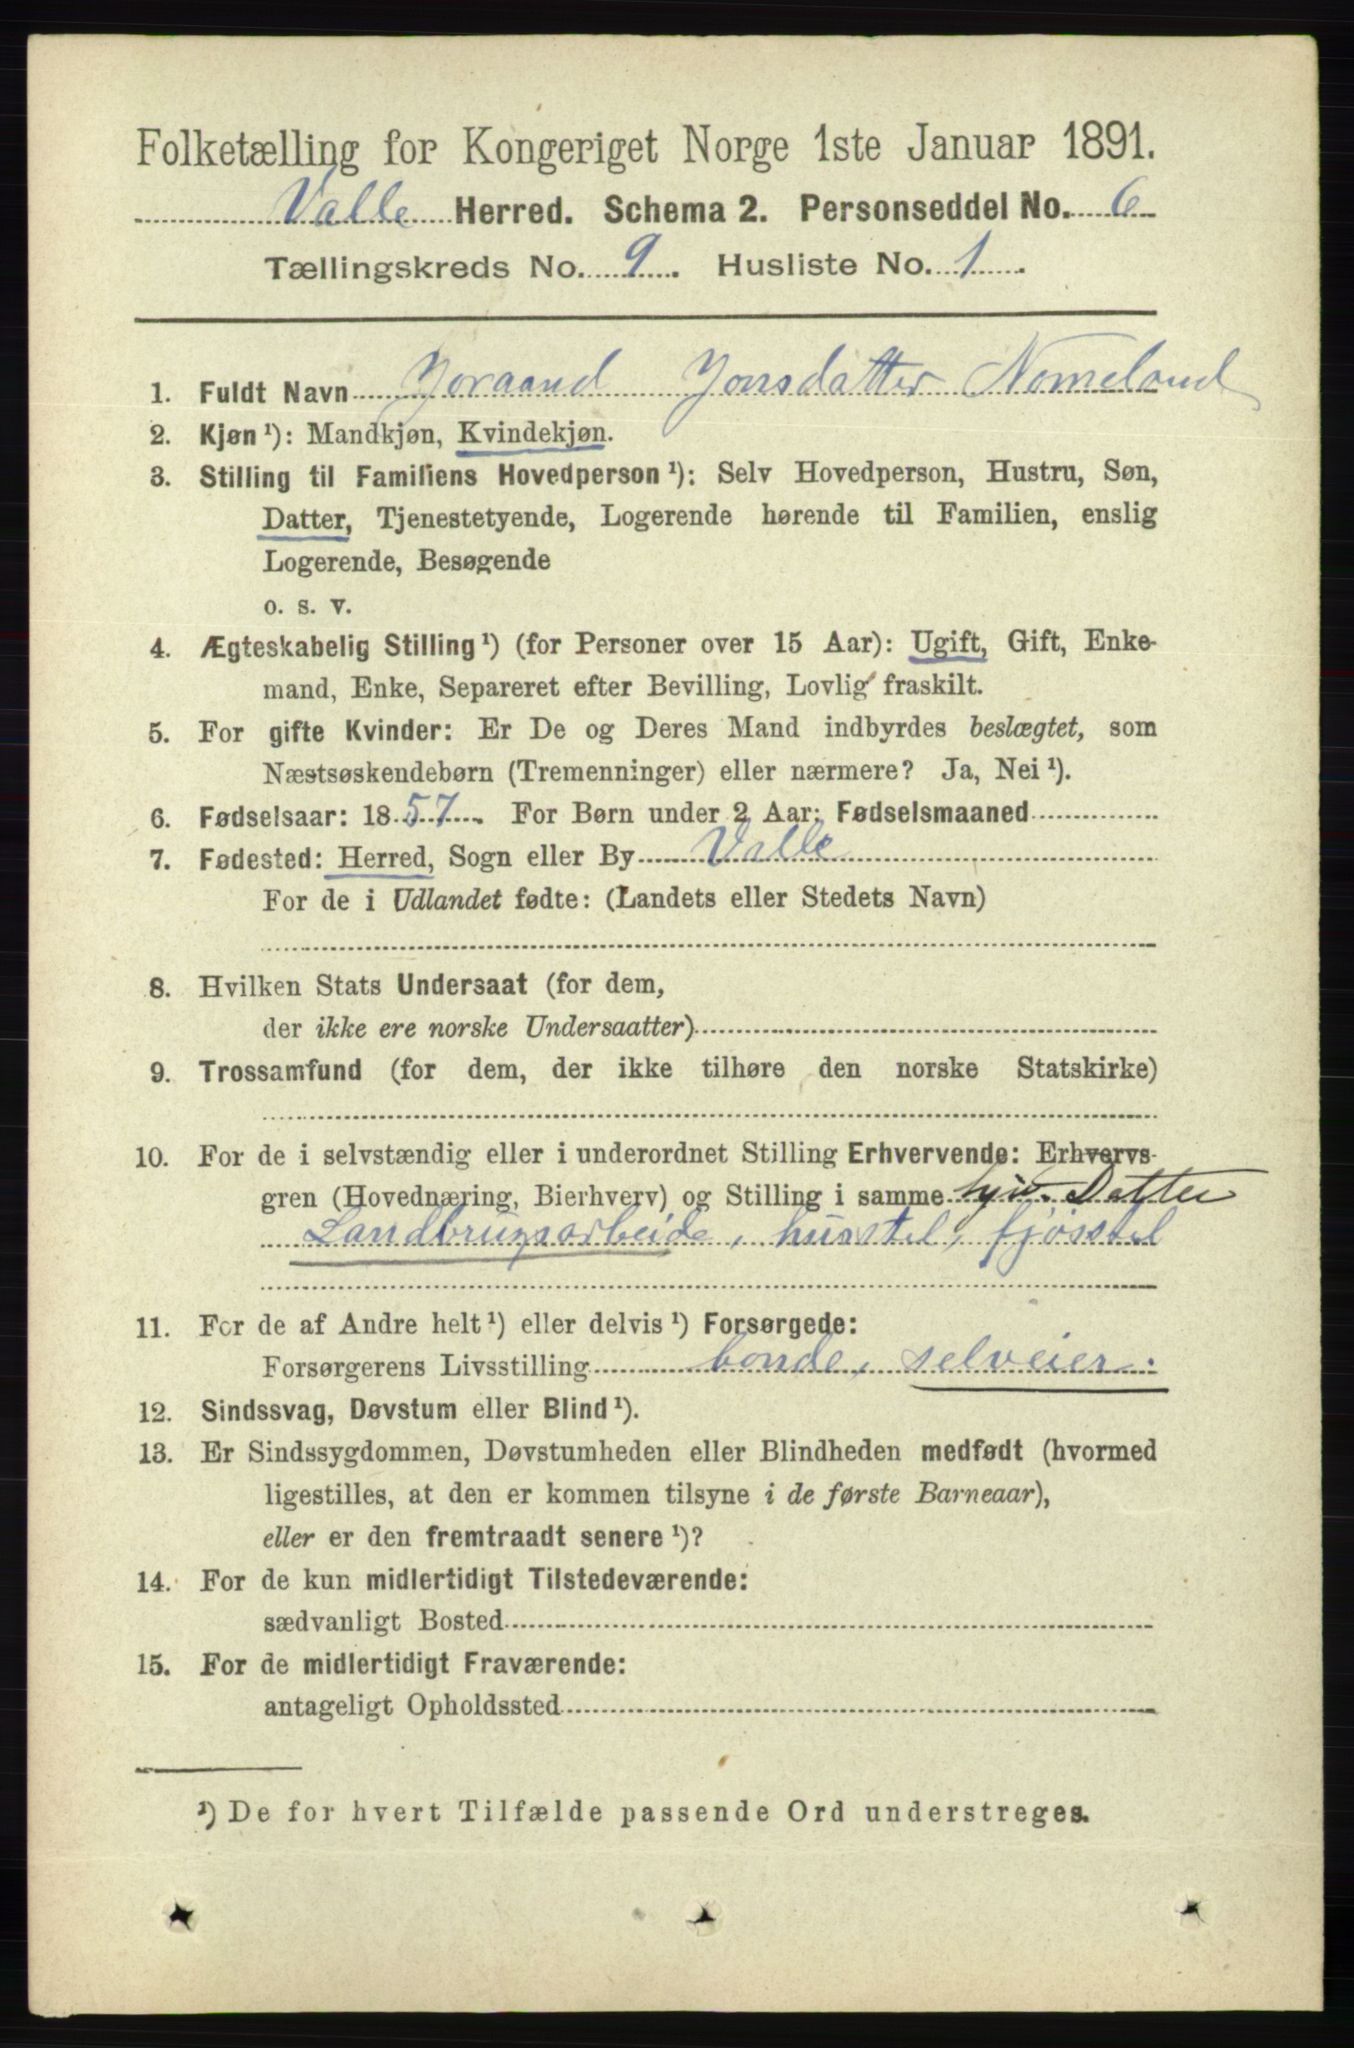 Folketælling for Kongeriget Norge 1ste Januar 1891.
Valle Herred. Schema 2. Personseddel No. 6
Tællingskreds No. 9. Husliste No. 1
1. Fuldt Navn Joraand Jonsdatter Nomeland
2. Kjøn ¹): Mandkjøn, Kvindekjøn.
3. Stilling til Familiens Hovedperson ¹): Selv Hovedperson, Hustru, Søn,
Datter, Tjenestetyende, Logerende hørende til Familien, enslig
Logerende, Besøgende
o. s. v.
4. Ægteskabelig Stilling ¹) (for Personer over 15 Aar): Ugift, Gift, Enke-
mand, Enke, Separeret efter Bevilling, Lovlig fraskilt.
5. For gifte Kvinder: Er De og Deres Mand indbyrdes beslægtet, som
Næstsøskendebørn (Tremenninger) eller nærmere? Ja, Nei ¹).
6. Fødselsaar: 1857. For Børn under 2 Aar: Fødselsmaaned
7. Fødested: Herred, Sogn eller By Valle
For de i Udlandet fødte: (Landets eller Stedets Navn)
8. Hvilken Stats Undersaat (for dem,
der ikke ere norske Undersaatter)
9. Trossamfund (for dem, der ikke tilhøre den norske Statskirke)
10. For de i selvstændig eller i underordnet Stilling Erhvervende: Erhvervs-
gren (Hovednæring, Bierhverv) og Stilling i samme Datter
Landbrugsarbeide, husstel, fjøsstel
11. For de af Andre helt ¹) eller delvis ¹) Forsørgede:
Forsørgerens Livsstilling bonde, selveier.
12. Sindssvag, Døvstum eller Blind ¹).
13. Er Sindssygdommen, Døvstumheden eller Blindheden medfødt (hvormed
ligestilles, at den er kommen tilsyne i de første Barneaar),
eller er den fremtraadt senere ¹)?
14. For de kun midlertidigt Tilstedeværende:
sædvanligt Bosted
15. For de midlertidigt Fraværende:
antageligt Opholdssted
¹) De for hvert Tilfælde passende Ord understreges.